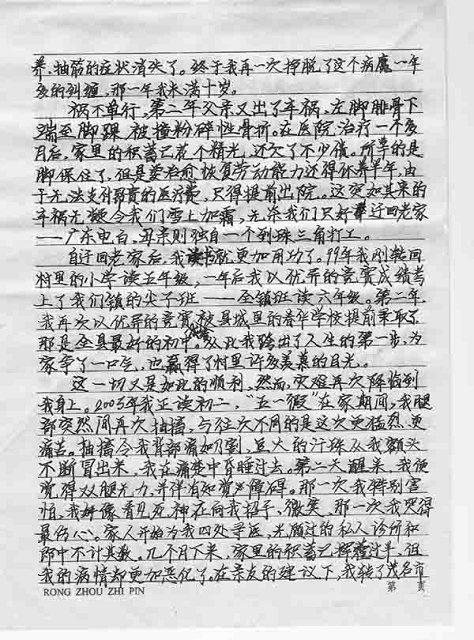 养，抽筋的症状消失了。终于我再一次挣脱了这个病魔一年
多的纠缠，那一年我未满十岁。
祸不单行，第二年父亲又出了车祸，左脚腓骨下
端至脚踝被撞粉碎性骨折。在医院治疗一个多
月后，家里的积蓄已花个精光，还欠了不少债。所幸的是
脚保住了，但是要治愈恢复劳动能力还得休养半年，由
于无法支付昂贵的医疗费，只得提前出院。这突如其来的
车祸无疑令我们雪上加霜，无奈我们只好举迁回老家
——广东电白，母亲则独自一个到珠三角打工。
自迁回老家后，我读书就更加用功了。99年我刚转回
村里的小学读五年级，一年后我以优异的竞赛成绩考
上了我们镇的尖子班——全镇班读六年级。第二年，
我再次以优异的竞赛被县城里的春华学校提前录取了，
那是全县最好的初中学校。从此我踏出了人生的第一步，为
家争了一口气，也赢得了村里许多羡慕的目光。
这一切又是如此的顺利，然而，灾难再次降临到
我身上。2003年我正读初二，“五一假”在家期间，我腿
部突然间再次抽搐，与往次不同的是这次更猛烈、更
痛苦。抽搐令我背部痛如刀割，豆大的汗珠从我额头
不断冒出来，我在痛楚中昏睡过去。第二天醒来，我便
觉得双腿无力，并伴有知觉障碍。那一次我特别害
怕，我好像看见死神在向我招手、微笑，那一次我哭得
最伤心。家人开始为我四处寻医，光顾过的私人诊所和
郎中不计其数。几个月下来，家里的积蓄已挥霍过半，但
我的病情却更加恶化了。在亲友的建议下，我转了茂名市
RONG ZHOU ZHI PIN 第 页